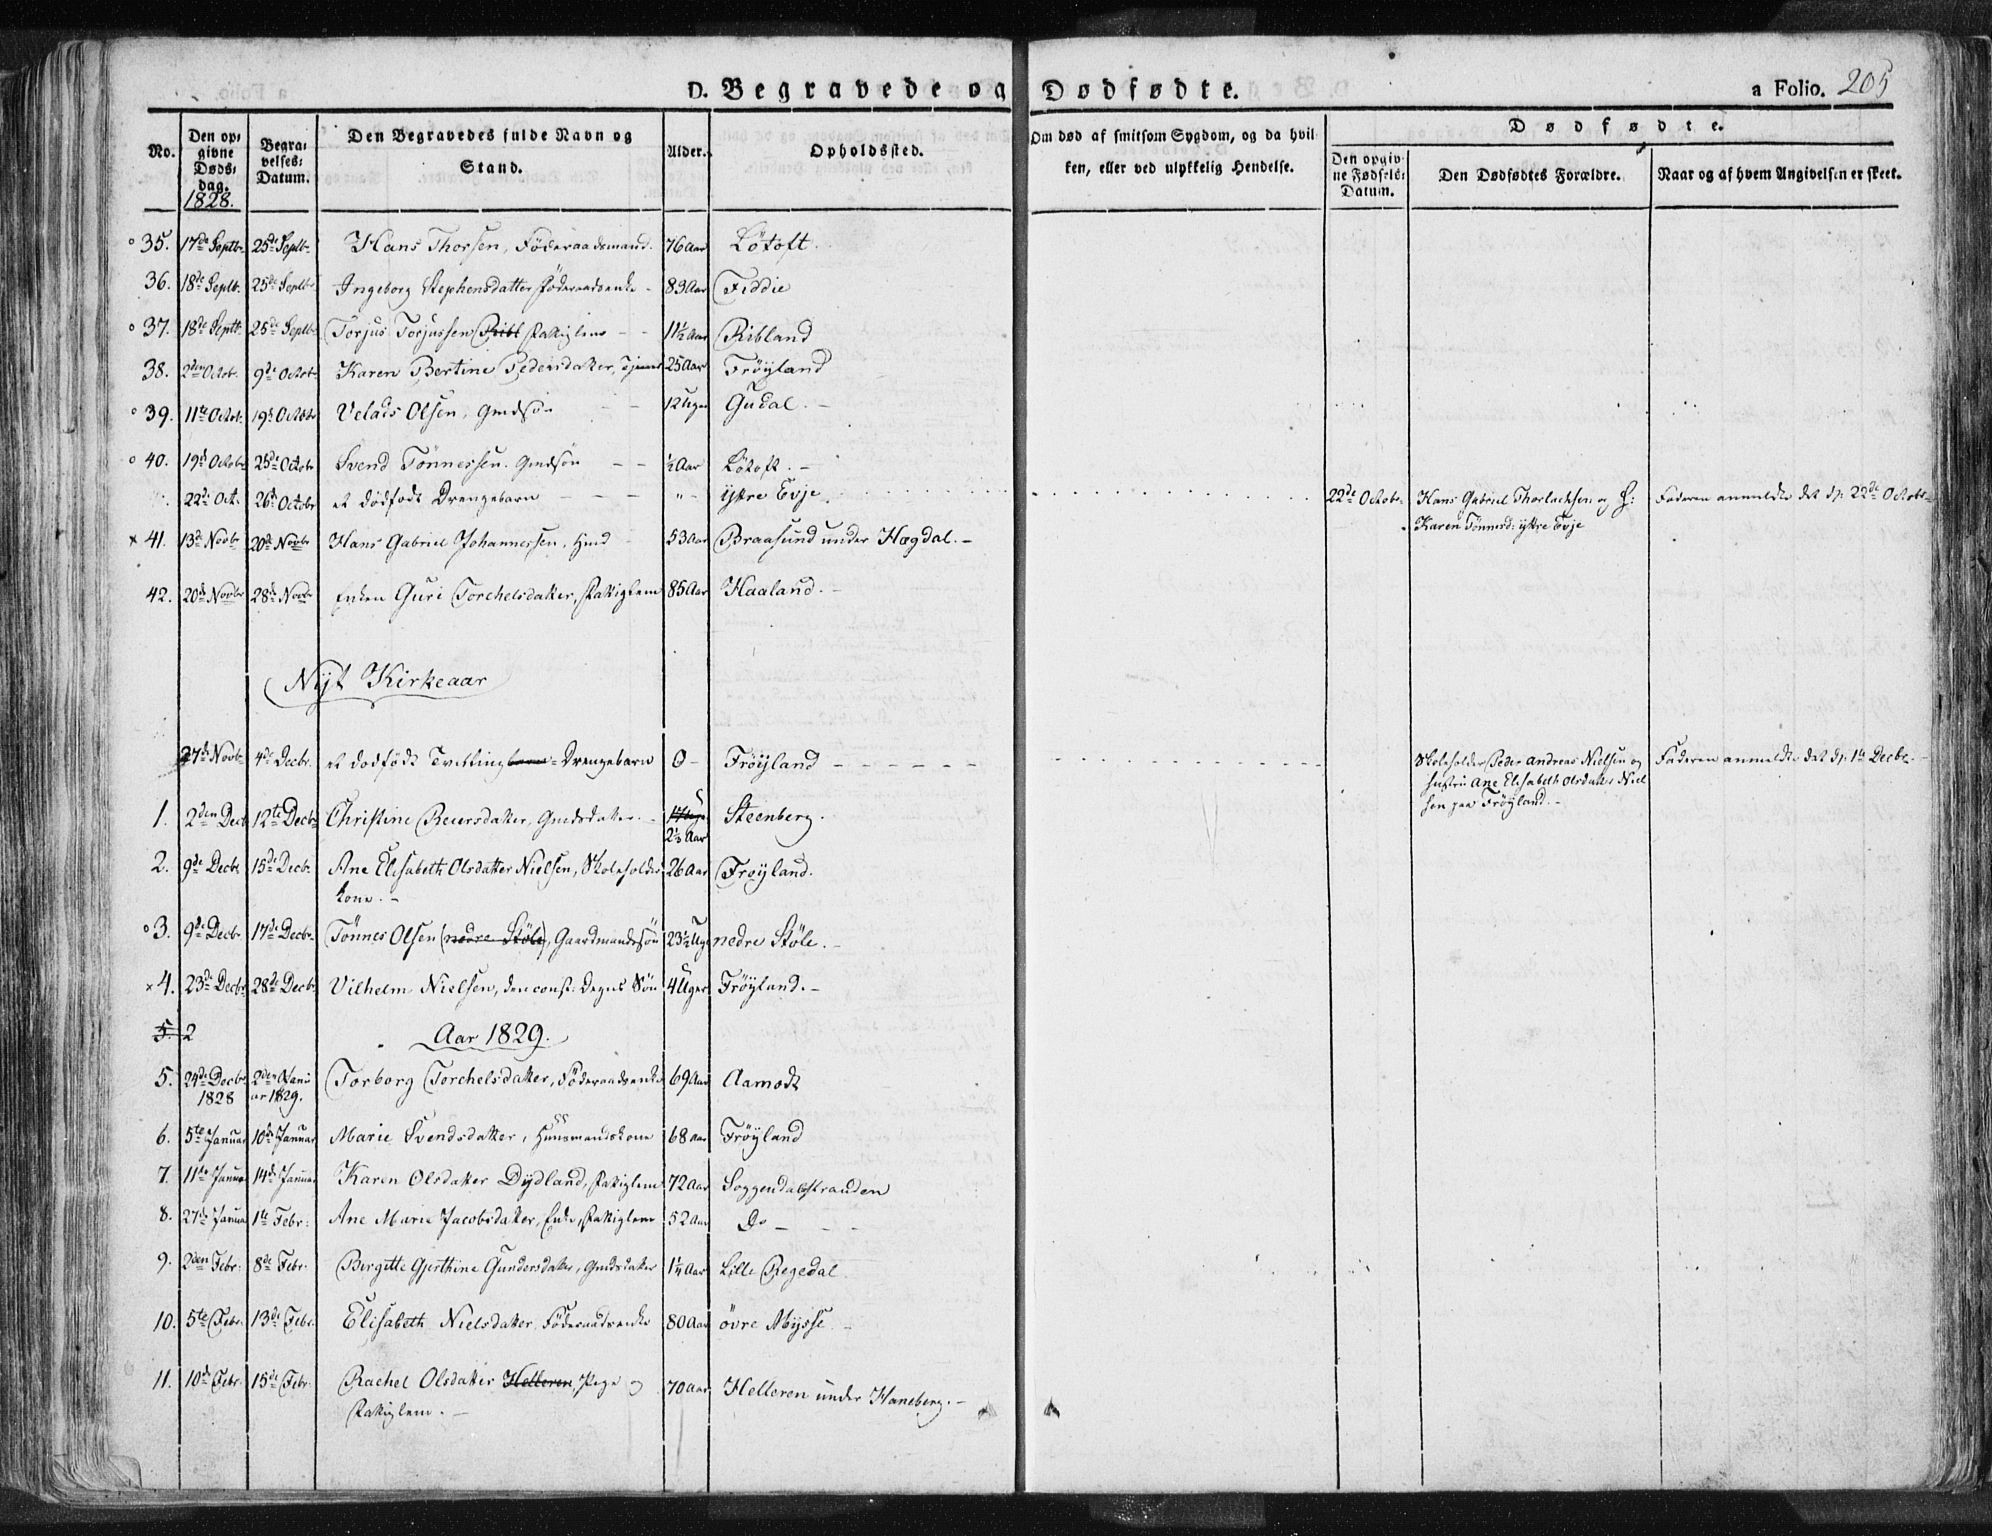 D. Begravede og Dødfødte.
a Folio. 205
No. Den opgivne Dødsdag. Begravelses: Datum. Den Begravedes fulde Navn og Stand. Alder. Opholdssted. Om død af smitsom Sygdom, og da hvilken, eller ved ulykkelig Hendelse. Dødfødte.
Den opgivne Fødsels: Datum. Den Dødfødtes Forældre. Naar og af hvem Angivelsen er skeet.
1828.
35. 17de Septbr. 25de Septbr. Hans Thorsen, Föderaadsmand. 76 Aar Lötoft.
36. 18de Septb. 25de Septbr Ingeborg Stephensdatter Föderaadsenke - 83 Aar Fiddie
37. 18de Septb. 25de Septbr Torjus Torjussen Ribl Fattiglem - - 11½ Aar Ribland
38. 2den Octob. 9de Octob. Karen Bertine Pedersdatter, 25 Aar Fröyland
39. 11te Octob. 19de Octobr Velads Olsen, Gmdsøn - - 12 Uger Gudal. -
40. 19de Octobr 25de Octobr Svend Tönnessen. Gmdsön - - ½ Aar Lötoft. -
22de Oct. 26de Octobr et dödfödt Drengebarn - - - " - ytre Evje 22de Octobr. Hans Gabriel Thorlachsen og H: Faderen anmeldte det d. 22de Octobr.
Karen Tönnesd: ytre Evje
41. 13de Novbr 20de Novbr Hans Gabriel Johannessen, Hmd 53 Aar Braasund under Hægdal. -
42. 20de Novbr 28de Novbr Enken Guri Torchelsdatter, Fattiglem 85 Aar Haaland. -
Nyt Kirkeaar
27de Novbr. 4de Decbr. et dödfödt Tvilling barn - Drengebarn 0 - Fröyland - - - Skoleholder Peder Andreas Nielsen og Faderen anmeldte det d. 1te Decbr.
hustru Ane Elisabeth Olsdatter Niel
sen paa Fröyland. -
1. 2den Decb 12te Decbr Christine Reiersdatter, Gmdsdatter. - 2½ Aar Steenberg.
2. 9de Decbr. 15de Decbr. Ane Elisabeth Olsdatter Nielsen, Skoleholder 26 Aar Fröyland.
kone. -
3. 9de Decbr. 17de Decbr. Tönnes Olsen (nedre Stöle), Gaardmandssön 23½ Uge nedre Stöle. -
4. 23de Decbr. 28de Decbr. Vilhelm Nielsen, den const: Degns Sön 4 Uger Fröyland. -
5. 2 Aar 1829.
5. 24de Decbr. 2den Janu Torborg Torchelsdatter, Föderaadsenke 69 Aar Aamodt
1828 ar 1829.
6. 5te Januar 10de Januar Marie Svendsdatter, Huusmandskone 68 Aar Fröyland
7. 11te Januar 14de Januar Karen Olsdatter Dydland, Fattiglem 72 Aar Soggendalstranden
8. 27de Januar 1te Febr: Ane Marie Jacobsdatter, Enke, Fattiglem 52 Aar Do - - -
9. 2den Febr: 8de Febr. Birgitte Gjerthine Gundersdatter, Gmdsdatter 1¼ Aar Lille Regedal.
10. 5te Febr. 13de Febr. Elisabeth Nielsdatter, Föderaadsenke 80 Aar övre Mysse. -
11. 10de Febr. 15de Febr. Rachel Olsdatter Helleren, Pige og 70 Aar Helleren under Haneberg. -
Fattiglem. -